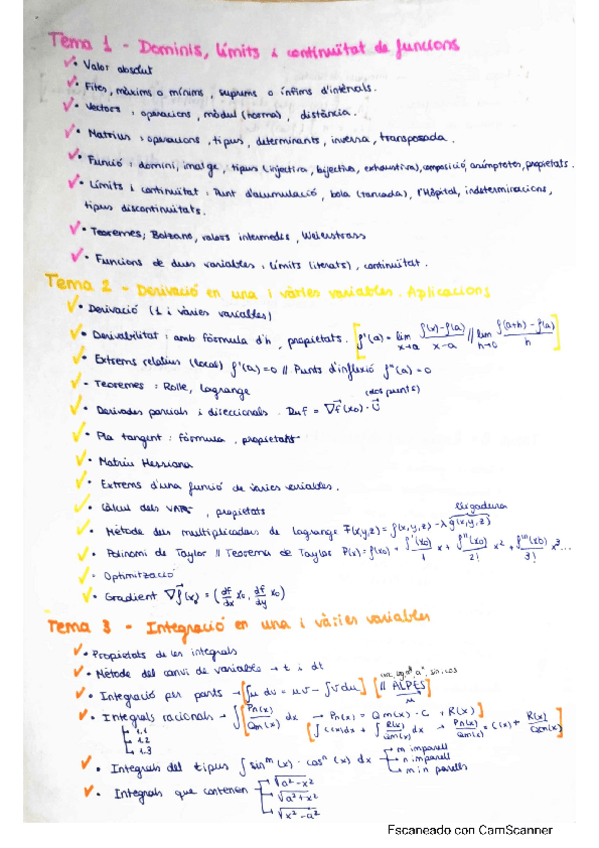 Tema 1 - Dominis, límits i continuïtat de funcions
• Valor absolut
• Fites, màxims o mínims, suprems o ínfims d'intervals.
• Vectors : operacions, mòdul (norma), distància.
• Matrius : operacions, tipus, determinants, inversa, transposada.
• Funció : domini, imatge, tipus (injectiva, bijectiva, exhaustiva), composició, asímptotes, propietats.
• Límits i continuïtat : Punt d'acumulació, bola (tancada), l'Hôpital, indeterminacions,
tipus discontinuitats.
• Teoremes; Bolzano, valors intermedis, Weierstrass
• Funcions de dues variables : límits (iterats), continuïtat.
Tema 2 - Derivació en una i vàries variables. Aplicacions
• Derivació (1 i vàries variables)
• Derivabilitat : amb fórmula d'h, propietats. [f'(a) = lim x→a f(x)-f(a) / x-a // lim h→0 f(a+h) - f(a) / h]
• Extrems relatius (local) f'(a)=0 // Punts d'inflexió f''(a)=0
• Teoremes : Rolle, Lagrange
(dos punts)
• Derivades parcials i direccionals. Duf = ∇f(x0) · v
• Pla tangent : fórmula, propietats
• Matriu Hessiana
• Extrems d'una funció de vàries variables.
• Càlcul dels, propietats
lligadura
• Mètode dels multiplicadors de Lagrange F(x,y,z) = f(x,y,z) - λ g(x,y,z)
• Polinomi de Taylor // Teorema de Taylor P(x) = f(x0) + f'(x0)/1 x + f''(x0)/2! x² + f'''(x0)/3! x³...
• Optimització
• Gradient ∇f(x0) = (df/dx x0, df/dy x0)
Tema 3 - Integració en una i vàries variables
• Propietats de les integrals
• Mètode del canvi de variable → t i dt
sin, cos
• Integració per parts → [∫u dv = uv - ∫v du] [// ALPES]
u
• Integrals racionals → ∫ [Pn(x)/Qm(x)] dx → Pn(x) = Qm(x) · C + R(x)
[∫ C(x)dx + ∫ R(x)/Qm(x) dx → Pn(x)/Qm(x) = C(x) + R(x)/Qm(x)]
1.1
1.2
1.3
• Integrals del tipus ∫ sin^m (x) · cos^n (x) dx
m imparell
n imparell
m i n parells
• Integrals que contenen
√a²-x²
√a²+x²
√x²-a²
Escaneado con CamScanner